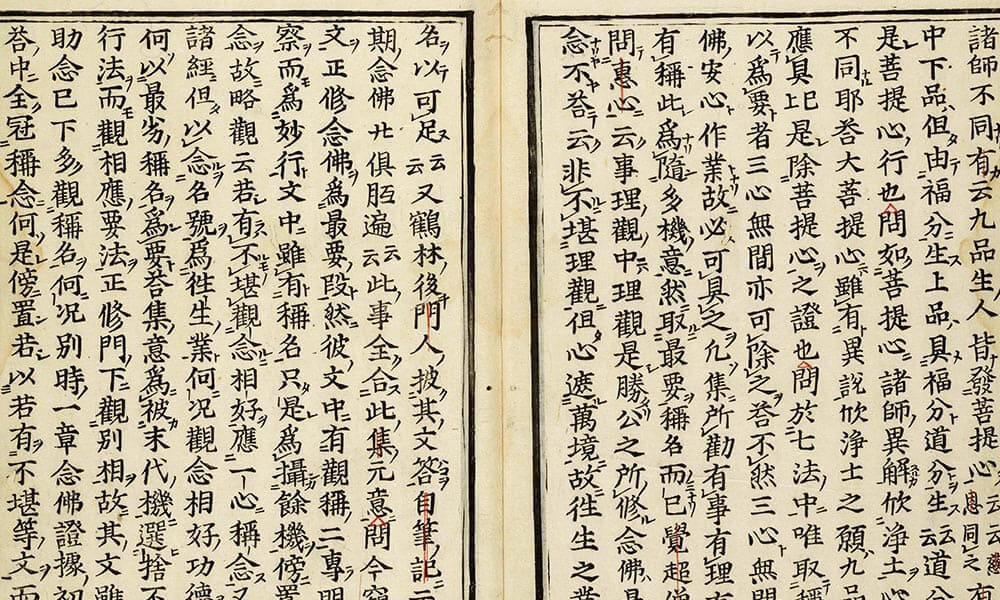 諸師不同有云九品生人皆發菩提心云云惠同之有
中下品但由福分生上品具福分道分生云云道分
是菩提心行也問如菩提心諸師異解欣淨土心
不同耶荅大菩提心雖有異說欣淨土之願九品
應具此是除菩提心之證也問於七法中唯取稱
以爲要者三心無間亦可除之荅不然三心無間
佛安心作業故必可具之凡集所勸有事有理
有稱此爲隨多機意然取最要稱名而已覺超僧
問惠心云事理觀中理觀是勝公之所修念佛
念不荅云非不堪理觀但心遮萬境故徃生之業
名以可足云云又鶴林後門人披其文筥自筆記云
期念佛廾俱胝遍云云此事全合此集元意問今窺
文正修念佛爲最要段然彼文中有觀稱二專明
察而爲妙行文中雖有稱名只是爲攝餘機傍置
念故略觀云若有不堪觀念相好應一心稱念又
諸經但以念名號爲徃生業何况觀念相好功德
何以最劣稱名爲要荅集意爲被末代機選捨不
行法而觀相應要法正修門下觀別相故其文雖
助念已下多觀稱名何况別時一章念佛證據初
荅中全冠稱念何是傍置若以若有不堪等文而